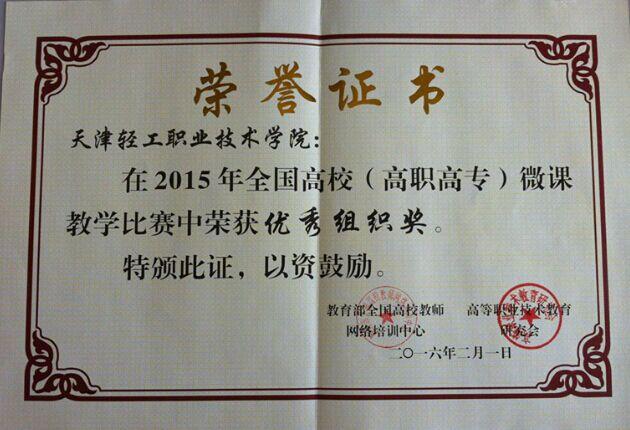 荣誉证书
天津轻工职业技术学院：
在2015年全国高校（高职高专）微课
教学比赛中荣获优秀组织奖。
特颁此证，以资鼓励。
教育部全国高校教师 高等职业技术教育
网络培训中心 研究会
二〇一六年二月一日